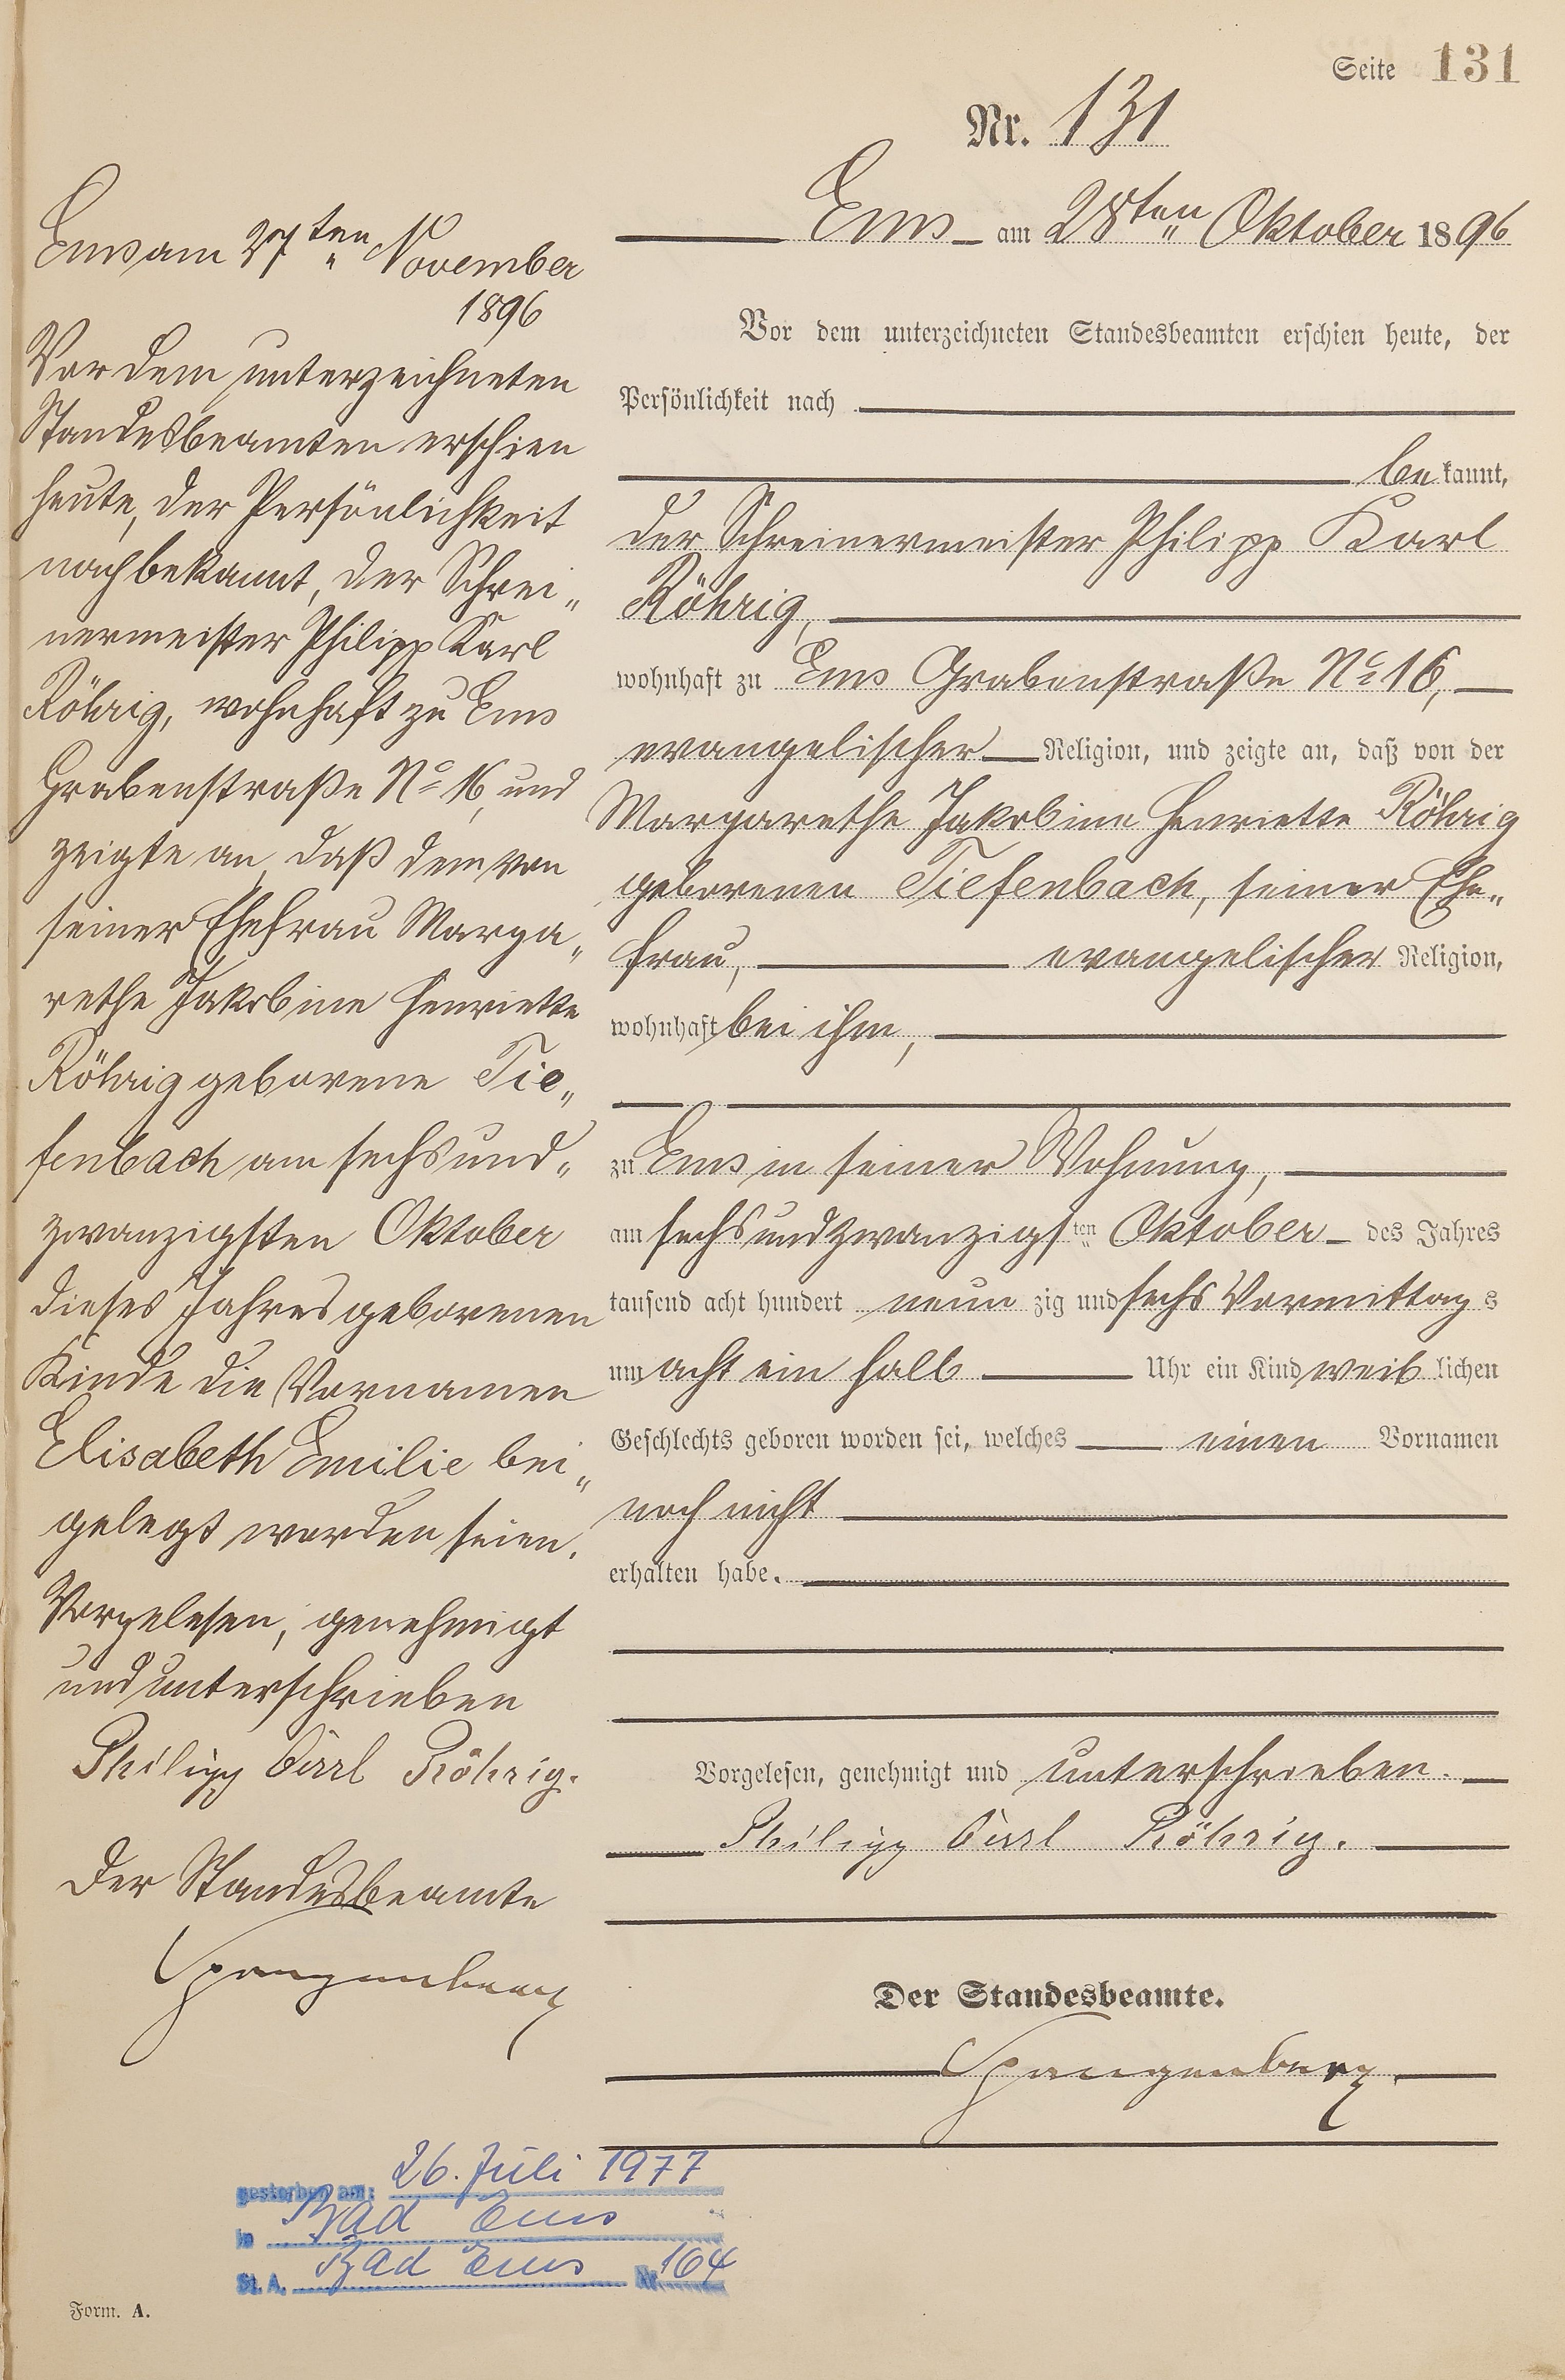 Seite 131
Nr. 131
Ems am 28ten Oktober 1896
Vor dem unterzeichneten Standesbeamten erschien heute, der
Persönlichkeit nach
bekannt,
der Schreinermeister Philipp Karl
Röhrig,
wohnhaft zu Ems Grabenstraße No 16,
evangelischer Religion, und zeigte an, daß von der
Margarethe Jakobine Henriette Röhrig
geborenen Tiefenbach, seiner Ehe„
frau, evangelischer Religion,
wohnhaft bei ihm,
zu Ems in seiner Wohnung,
am sechsundzwanzigsten Oktober des Jahres
tausend acht hundert neunzig und sechs Vormittags
um acht ein halb Uhr ein Kind weiblichen
Geschlechts geboren worden sei, welches einen Vornamen
noch nicht
erhalten habe.
Vorgelesen, genehmigt und unterschrieben.
Philipp Carl Röhrig.
Der Standesbeamte.
Spangenberg.
Ems am 27ten November
1896
Vor dem unterzeichneten
Standesbeamten erschien
heute, der Persönlichkeit
nach bekannt, der Schrei„
nermeister Philipp Karl
Röhrig, wohnhaft zu Ems
Grabenstraße No 16, und
zeigte an, daß dem von
seiner Ehefrau Marga„
rethe Jakobine Henriette
Röhrig geborene Tie„
fenbach am sechsund„
zwanzigsten Oktober
dieses Jahres geborenen
Kinde die Vornamen
Elisabeth Emilie bei„
gelegt worden seien.
Vorgelesen, genehmigt
und unterschrieben
Philipp Carl Röhrig.
Der Standesbeamte
Spangenberg
gestorben am: 26. Juli 1977
in Bad Ems
St. A. Bad Ems Nr. 164
Form. A.